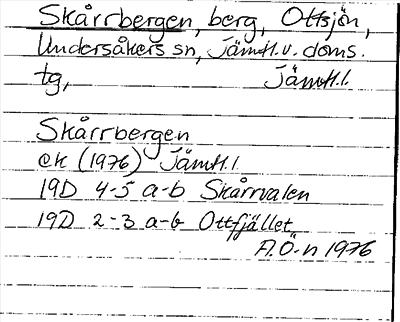 Skårrbergen, berg, Ottsjön,
Undersåkers sn, Jämtl.v. doms.
tg, Jämtl.l.
Skårrbergen
ek (1976) Jämtl.l
19D 4-5 a-b Skårrvalen
19D 2-3 a-b Ottfjället
A.Ö-n 1976